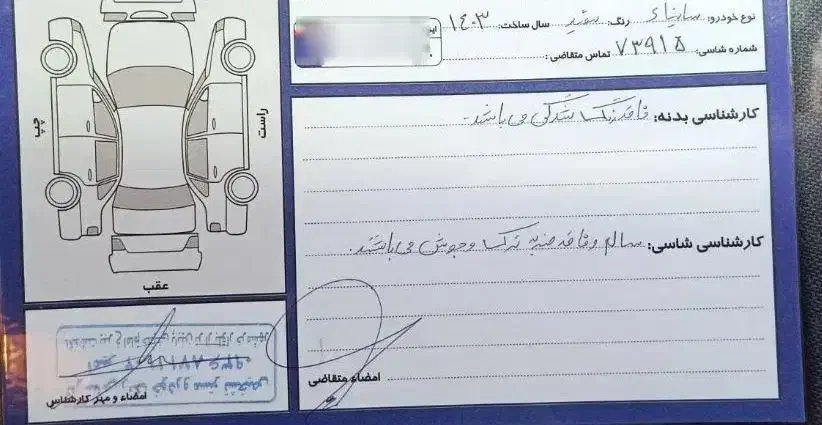 نوع خودرو: ساینا S رنگ: سفید سال ساخت: ۱۴۰۳
شماره شاسی: ۷۳۹۱۵ تماس متقاضی:
کارشناسی بدنه: فاقد رنگ شدگی می باشد.
کارشناسی شاسی: سالم و فاقد ضربه ترک و جوش می باشند.
راست
چپ
عقب
امضاء متقاضی
امضاء و مهر کارشناس